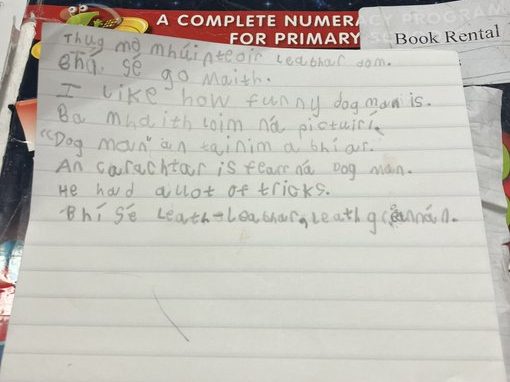 A COMPLETE NUMERACY PROGRAM
FOR PRIMARY
Book Rental
Thug mo mhúinteoir leabhar dom.
Bhí sé go maith.
I like how funny dog man is.
Ba mhaith loim ná pictuirí.
"Dog man" an tainim a bhí ar.
An carachtar is fearr ná Dog man.
He had a llot of tricks.
Bhí sé leath-leabhar, leath grannán.